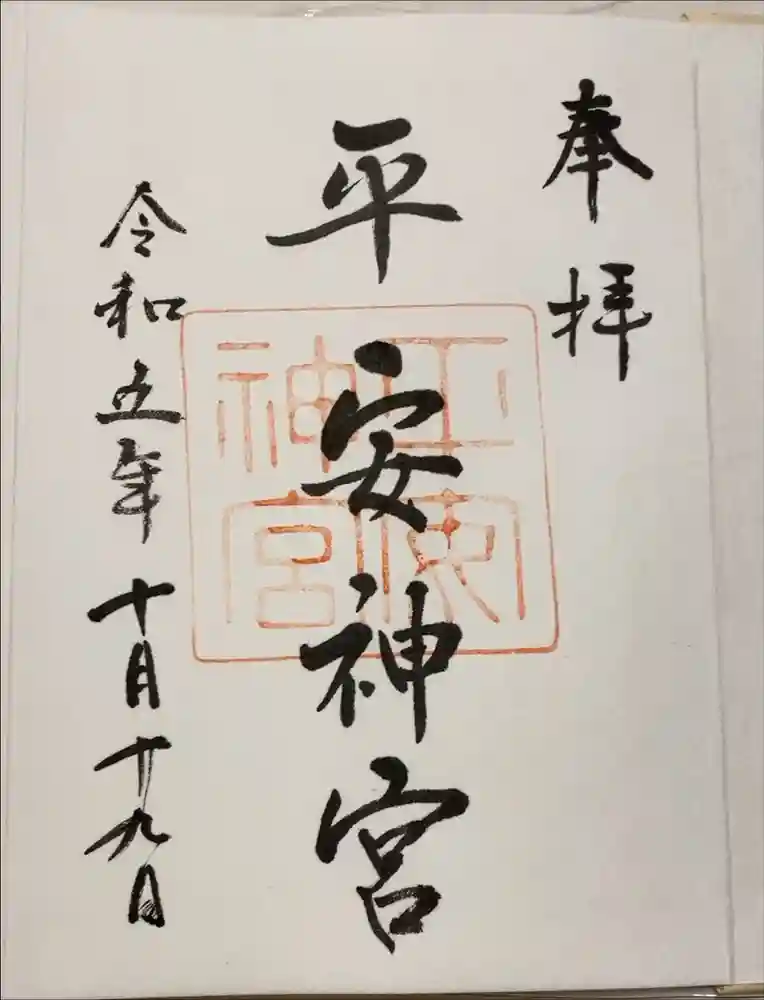 奉拝
平安神宮
平安神宮
令和五年十月十九日